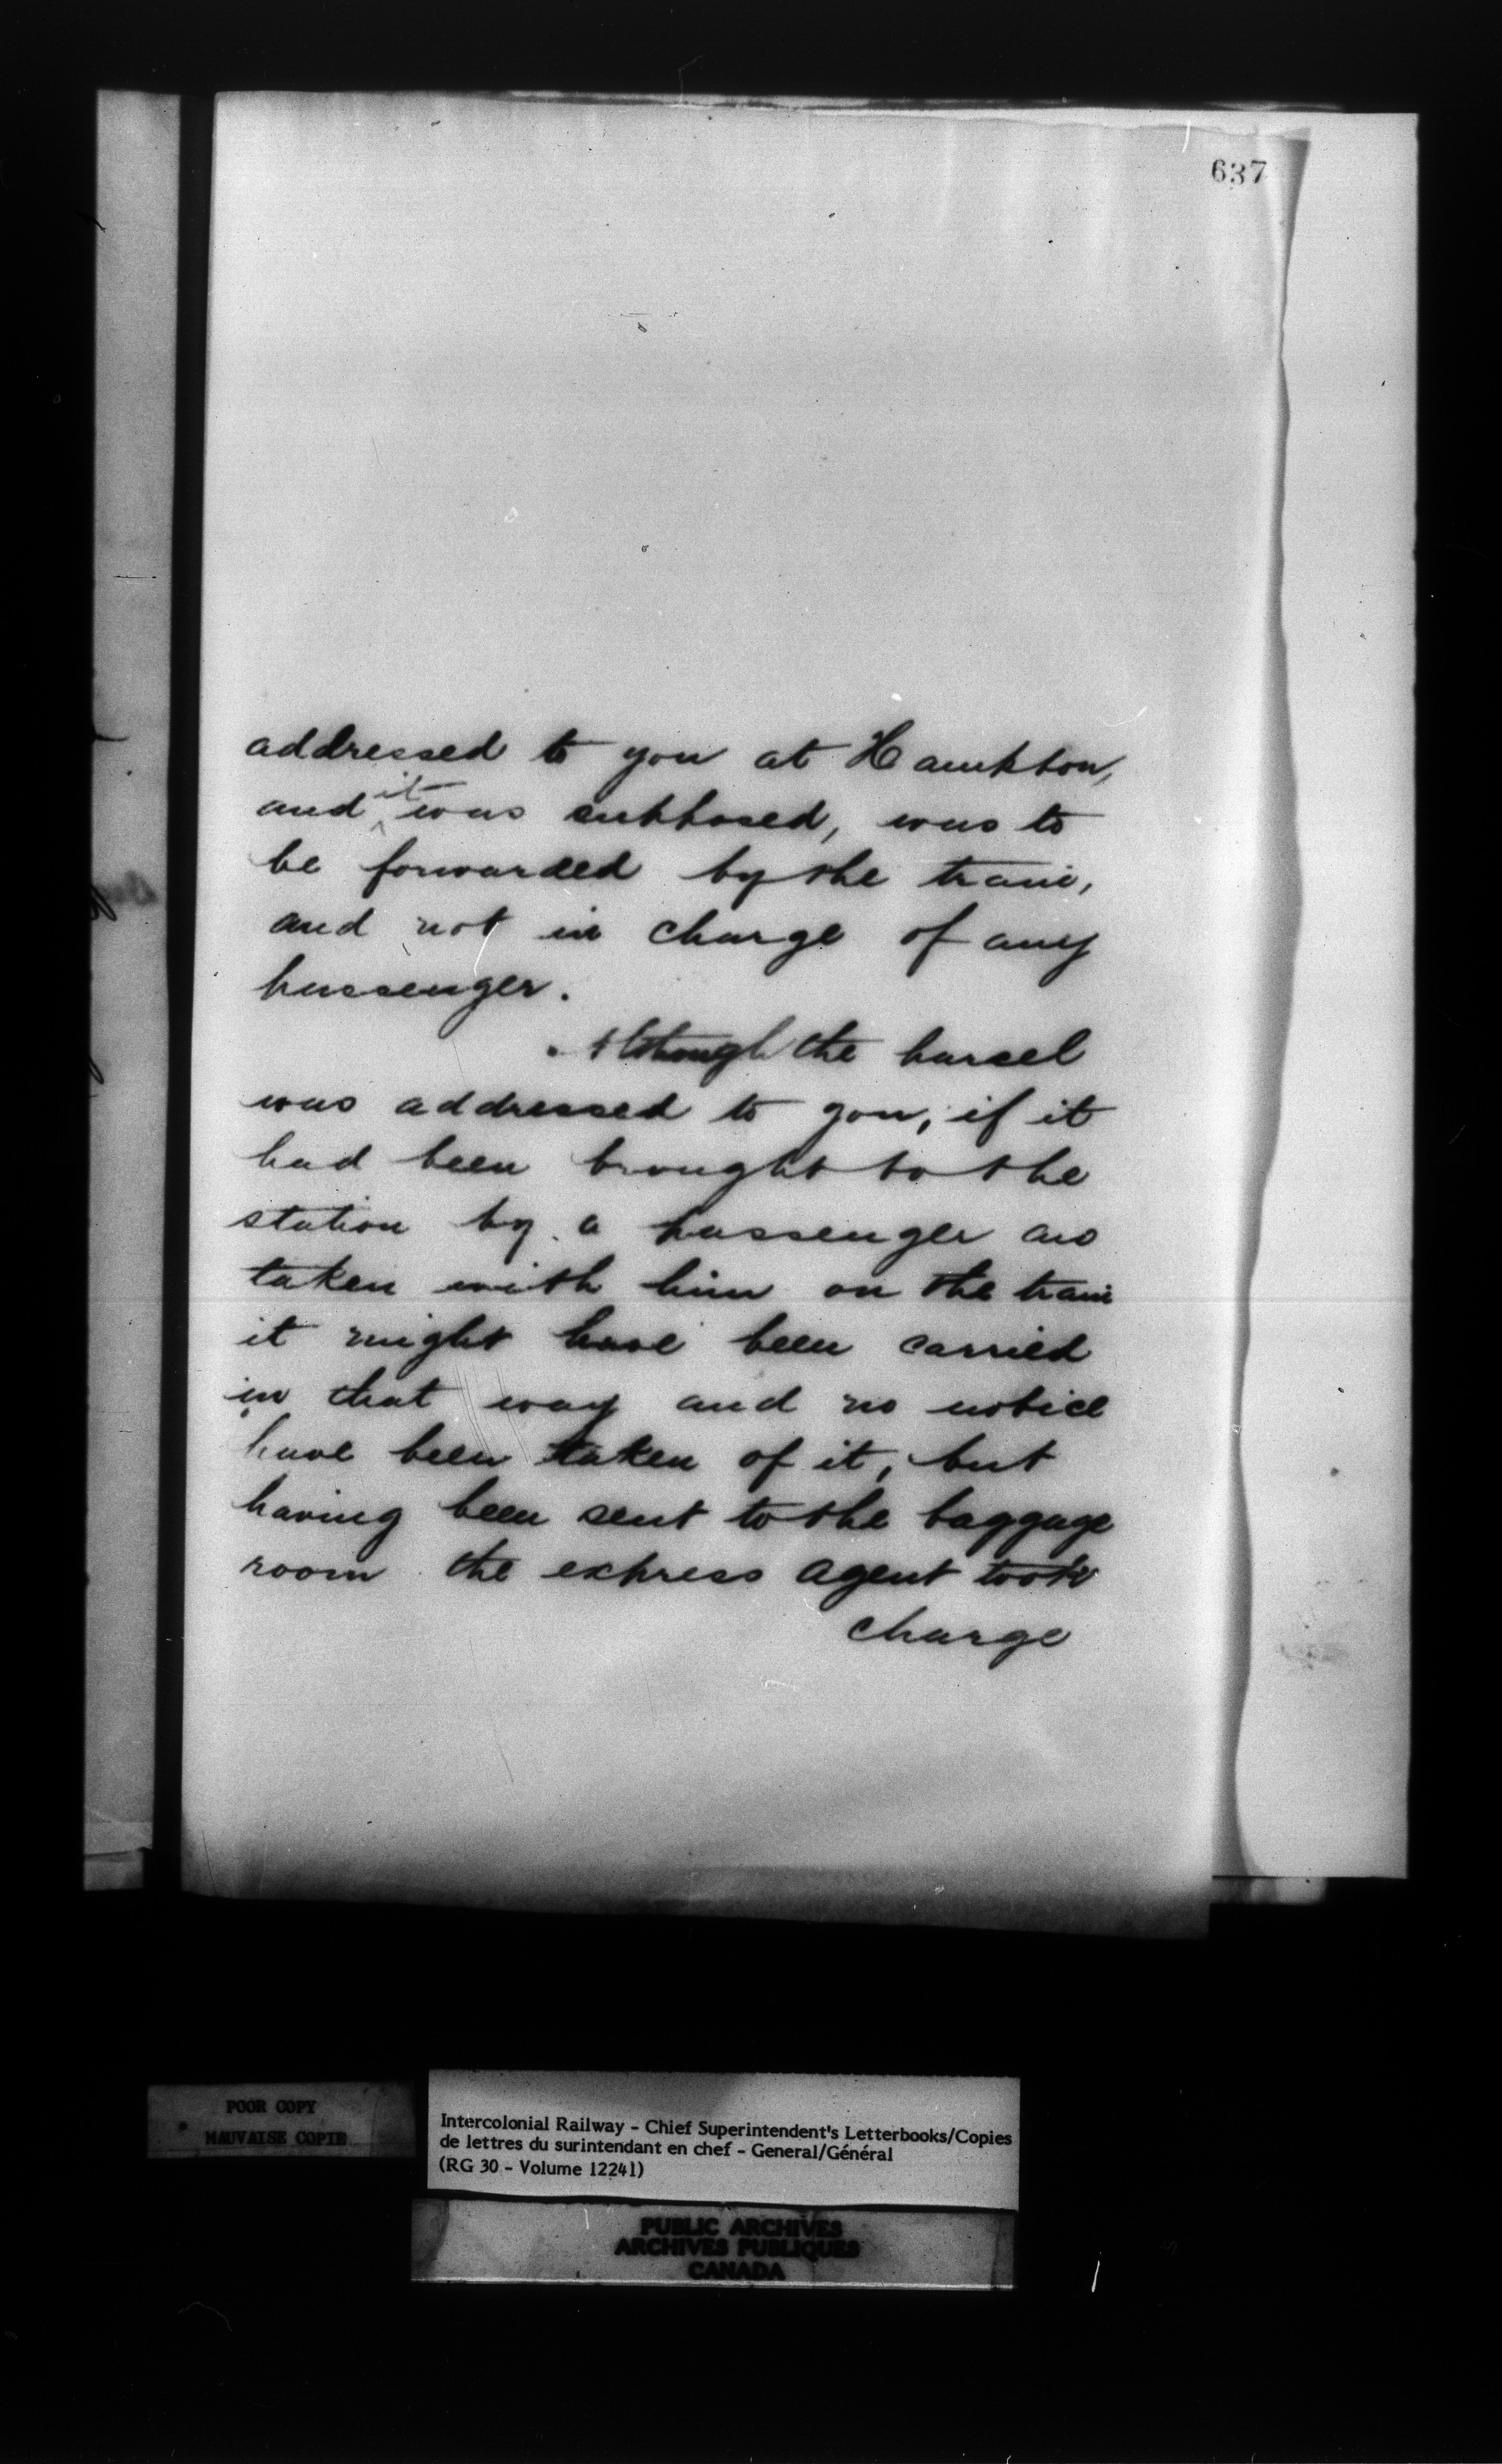 637
addressed to you at Hampton,
and it was supposed, was to
be forwarded by the train,
and not in charge of any
passenger.
Although the parcel
was addressed to you, if it
had been brought to the
station by a passenger and
taken with him on the train
it might have been carried
in that way and no notice
have been taken of it, but
having been sent to the baggage
room the express agent took
charge
POOR COPY
MAUVAISE COPIE
Intercolonial Railway - Chief Superintendent's Letterbooks/Copies
de lettres du surintendant en chef - General/Général
(RG 30 - Volume 12241)
PUBLIC ARCHIVES
ARCHIVES PUBLIQUES
CANADA